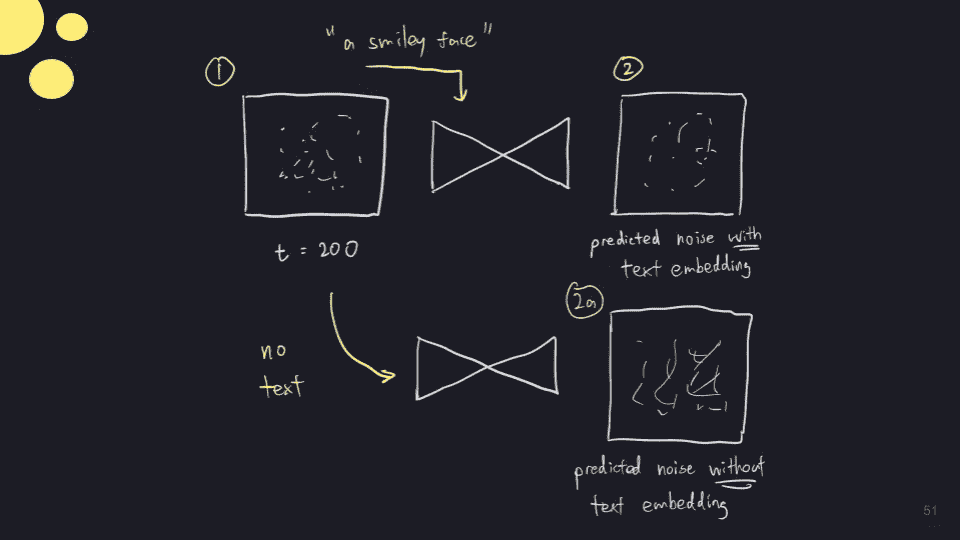 "a smiley face"
1
2
t = 200
predicted noise with
text embedding
2a
no
text
predicted noise without
text embedding
51